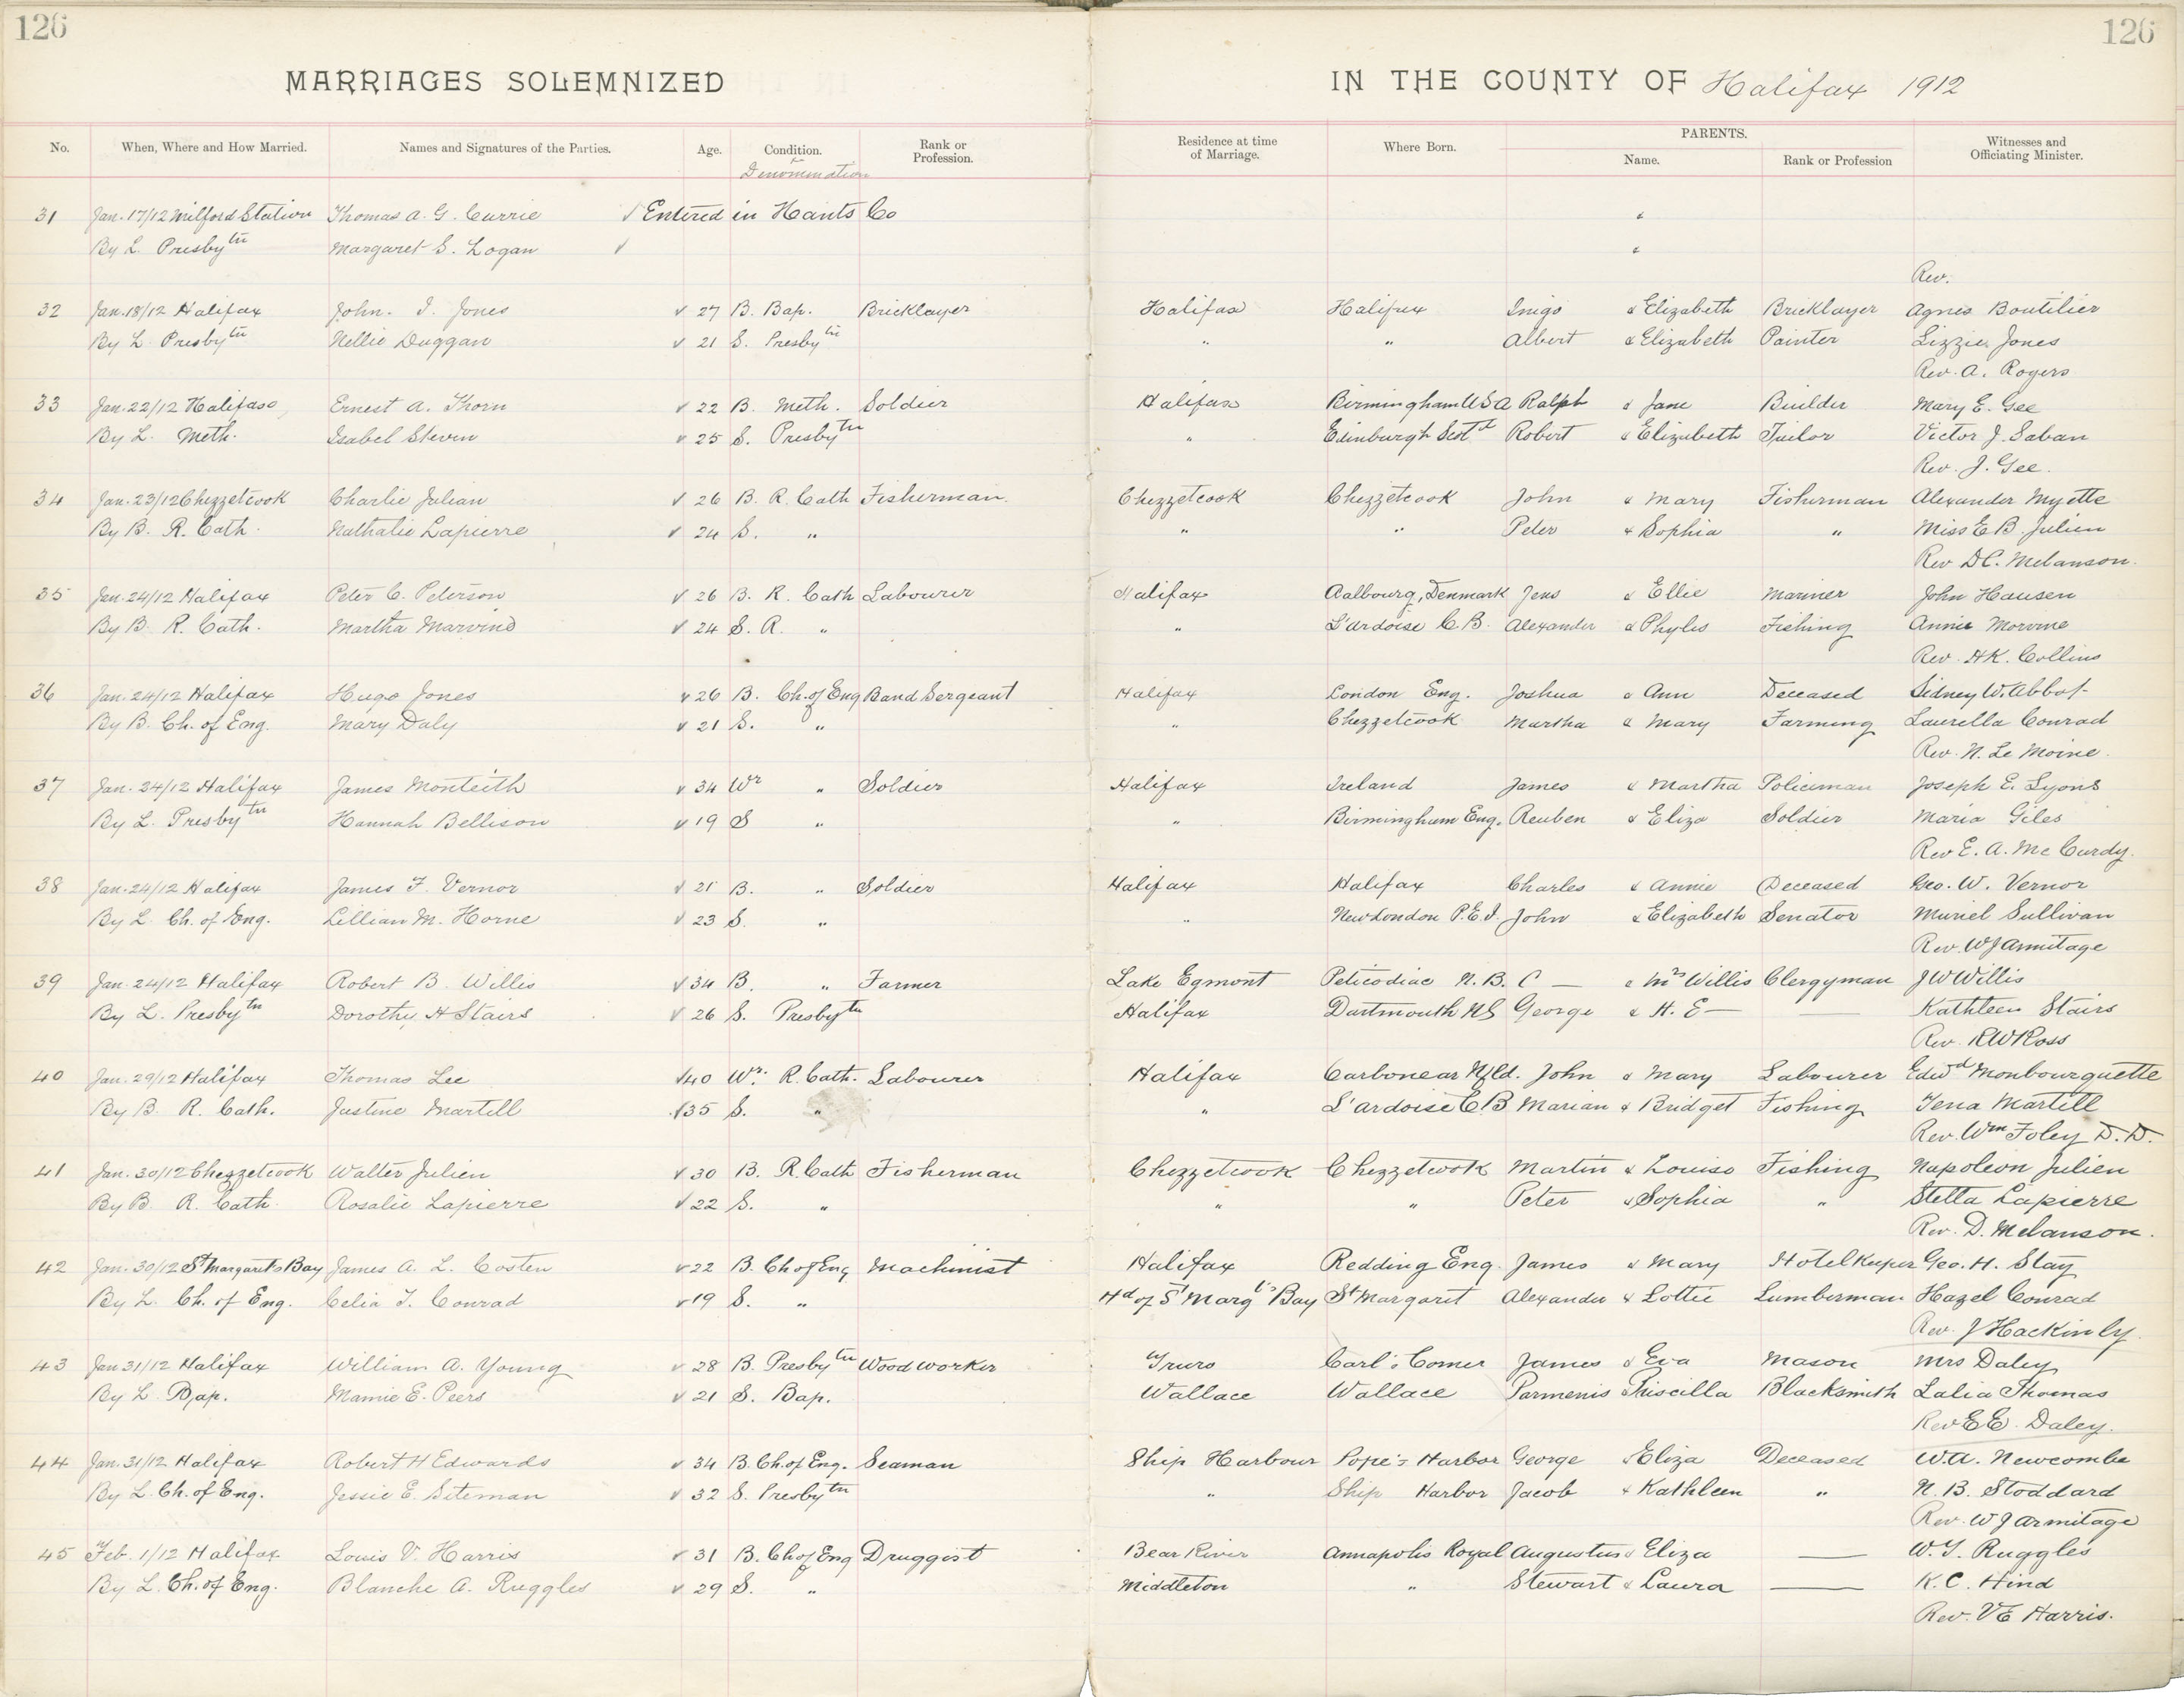 126
126
MARRIAGES SOLEMNIZED
IN THE COUNTY OF Halifax 1912
No. When, Where and How Married. Names and Signatures of the Parties. Age. Condition. Rank or Profession. Residence at time of Marriage. Where Born. PARENTS. Name. Rank or Profession Witnesses and Officiating Minister.
Denomination
31 Jan. 17/12 Milford Station Thomas A. G. Currie Entered in Hants Co
By L. Presbytn Margaret S. Logan
Rev.
32 Jan. 18/12 Halifax John. I. Jones 27 B. Bap. Bricklayer Halifax Halifax Inigo & Elizabeth Bricklayer Agnes Boutilier
By L. Presbytn Nellie Duggan 21 S. Presbytn " " Albert & Elizabeth Painter Lizzie Jones
Rev. A. Rogers
33 Jan. 22/12 Halifax Ernest A. Thorn 22 B. Meth. Soldier Halifax Birmingham USA Ralph & Jane Builder Mary E. Gee
By L. Meth. Isabel Steven 25 S. Presbytn " Edinburgh Scotd Robert & Elizabeth Tailor Victor J. Saban
Rev. J. Gee.
34 Jan. 23/12 Chezzetcook Charlie Julian 26 B. R. Cath Fisherman. Chezzetcook Chezzetcook John & Mary Fisherman Alexander Myette
By B. R. Cath. Nathalie Lapierre 24 S. " " " Peter & Sophia " Miss E B. Julien
Rev D C. Melanson.
35 Jan. 24/12 Halifax Peter C. Peterson 26 B. R. Cath Labourer Halifax Aalbourg, Denmark Jens & Ellie Mariner John Hansen
By B. R. Cath. Martha Marvino 24 S. R. " " L'ardoise C. B. Alexander & Phylis Fishing Annie Morvine
Rev. HK. Collins
36 Jan. 24/12 Halifax Hugo Jones 26 B. Ch. of Eng Band Sergeant Halifax London Eng. Joshua & Ann Deceased Sidney W. Abbot
By B. Ch. of Eng. Mary Daly 21 S. " " Chezzetcook Martha & Mary Farming Laurella Conrad
Rev. N. Le Moine.
37 Jan. 24/12 Halifax James Monteith 34 Wr " Soldier Halifax Ireland James & Martha Policeman Joseph E. Lyons
By L. Presbytn Hannah Bellison 19 S " " Birmingham Eng. Reuben & Eliza Soldier Maria Giles
Rev E. A. McCurdy.
38 Jan. 24/12 Halifax James F. Vernor 21 B. " Soldier Halifax Halifax Charles & Annie Deceased Geo. W. Vernor
By L. Ch. of Eng. Lillian M. Horne 23 S. " " New London P.E.I. John & Elizabeth Senator Muriel Sullivan
Rev. W J Armitage
39 Jan. 24/12 Halifax Robert B. Willis 34 B. " Farmer Lake Egmont Peticodiac N. B. C — & Mrs Willis Clergyman J W Willis
By L. Presbytn Dorothy H Stairs 26 S. Presbytn Halifax Dartmouth NS George & H. E— — Kathleen Stairs
Rev. R W Ross
40 Jan. 29/12 Halifax Thomas Lee 40 Wr. R. Cath. Labourer Halifax Carbonear Nfld. John & Mary Labourer Edwd Monbourquette
By B. R. Cath. Justine Martell 35 S. " " L'ardoise C. B Marian & Bridget Fishing Tena Martell
Rev. Wm Foley D. D.
41 Jan. 30/12 Chezzetcook Walter Julien 30 B. R. Cath Fisherman Chezzetcook Chezzetcook Martin & Louise Fishing Napoleon Julien
By B. R. Cath. Rosalie Lapierre 22 S. " " " Peter & Sophia " Stella Lapierre
Rev. D. Melanson.
42 Jan. 30/12 St Margarets Bay James A. L. Costen 22 B. Ch of Eng Machinist Halifax Redding Eng. James & Mary Hotel Keeper Geo. H. Stay
By L. Ch. of Eng. Celia T. Conrad 19 S. " Hd of St Margts Bay St Margaret Alexander & Lottie Lumberman Hazel Conrad
Rev. J Hackinly.
43 Jan 31/12 Halifax William A. Young 28 B. Presbytn Woodworker Truro Carl's Corner James & Eva Mason Mrs Daley
By L. Bap. Mamie E. Peers 21 S. Bap. Wallace Wallace Parmenis & Priscilla Blacksmith Lalia Thomas
Rev E E. Daley.
44 Jan. 31/12 Halifax Robert H Edwards 34 B. Ch of Eng. Seaman Ship Harbour Pope's Harbor George & Eliza Deceased W. A. Newcombe
By L. Ch. of Eng. Jessie E. Siteman 32 S. Presbytn " Ship Harbor Jacob & Kathleen " N. B. Stoddard
Rev. W J Armitage
45 Feb. 1/12 Halifax Louis V. Harris 31 B. Ch of Eng Druggist Bear River Annapolis Royal Augustus & Eliza — W. Y. Ruggles
By L. Ch. of Eng. Blanche A. Ruggles 29 S. " Middleton " Stewart & Laura — K. C. Hind
Rev. V E Harris.